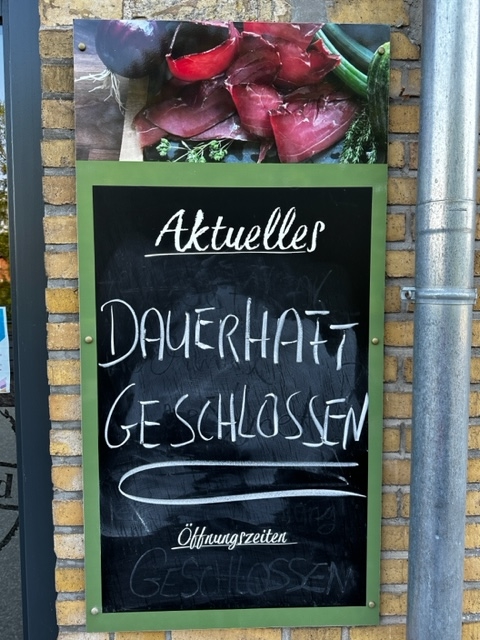 Aktuelles
DAUERHAFT
GESCHLOSSEN
Öffnungszeiten
GESCHLOSSEN